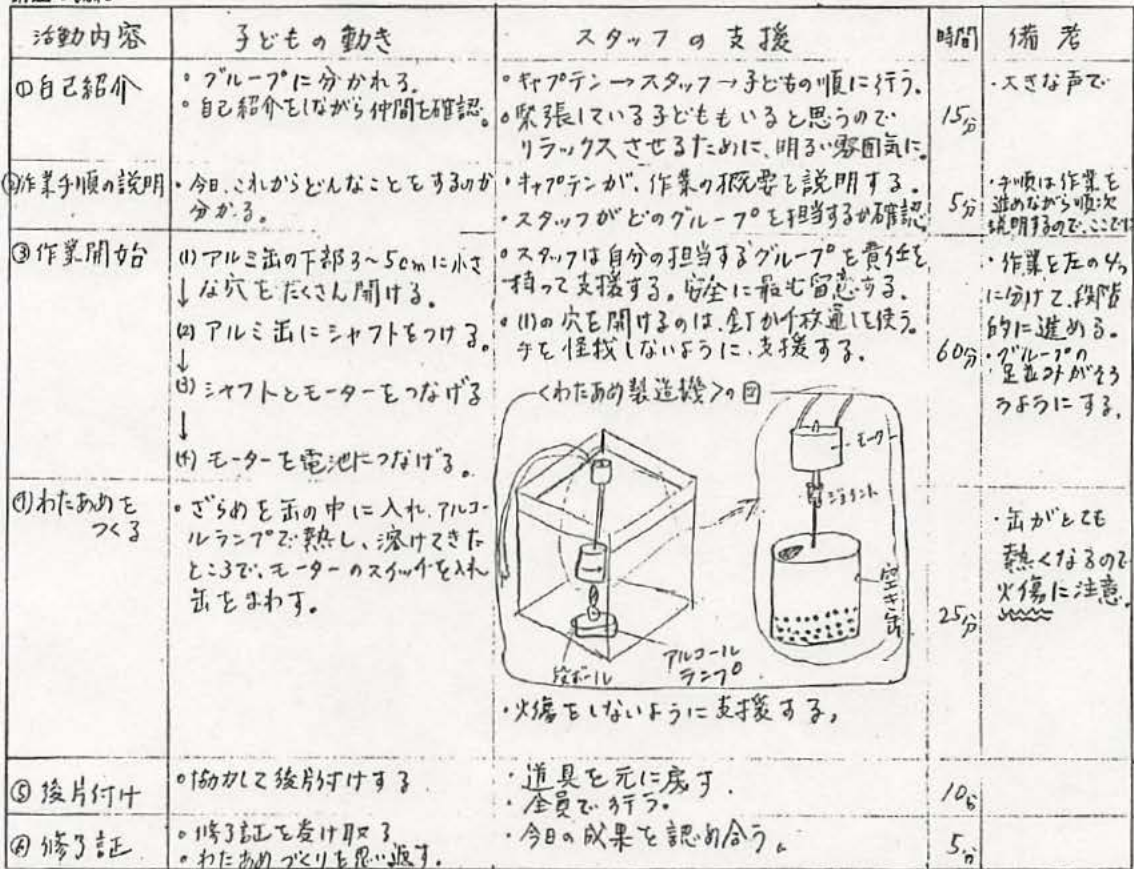 活動内容 子どもの動き スタッフの支援 時間 備考
①自己紹介
・グループに分かれる。
・自己紹介をしながら仲間を確認。
・キャプテン→スタッフ→子どもの順に行う。
・緊張している子どももいると思うので
リラックスさせるために、明るい雰囲気に。
15分
・大きな声で
②作業手順の説明
・今日、これからどんなことをするのか
分かる。
・キャプテンが、作業の概要を説明する。
・スタッフがどのグループを担当するか確認
5分
・手順は作業を
進めながら順次
説明するので、ここでは
③作業開始
(1) アルミ缶の下部3〜5cmに小さ
な穴をたくさん開ける。
↓
(2) アルミ缶にシャフトをつける。
↓
(3) シャフトとモーターをつなげる
↓
(4) モーターを電池につなげる。
・スタッフは自分の担当するグループを責任を
持って支援する。安全に最も留意する。
・(1)の穴を開けるのは、釘か千枚通しを使う。
手を怪我しないように、支援する。
60分
・作業を左の4つ
に分けて、段階
的に進める。
・グループの
足並みがそろ
うようにする。
<わたあめ製造機>の図
モーター
ジョイント
空き缶
段ボール
アルコール
ランプ
④わたあめを
つくる
・ざらめを缶の中に入れ、アルコー
ルランプで熱し、溶けてきた
ところで、モーターのスイッチを入れ
缶をまわす。
・火傷をしないように支援する。
25分
・缶がとても
熱くなるので
火傷に注意。
⑤後片付け
・協力して後片付けする
・道具を元に戻す.
・全員で行う。
10分
⑥修了証
・修了証を受け取る
・わたあめづくりを思い返す。
・今日の成果を認め合う。
5分